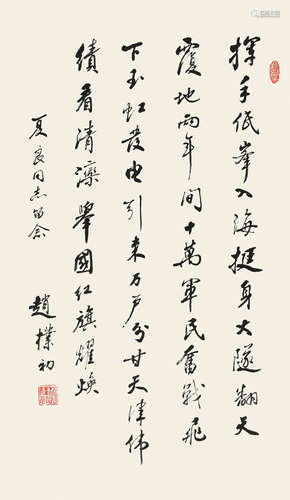 揮手低峯入海挺身大隧翻天
覆地兩年間十萬軍民奮戰飛
下玉虹發电引来万户分甘天津偉
績看清灤舉國红旗耀焕
夏良同志留念
趙樸初